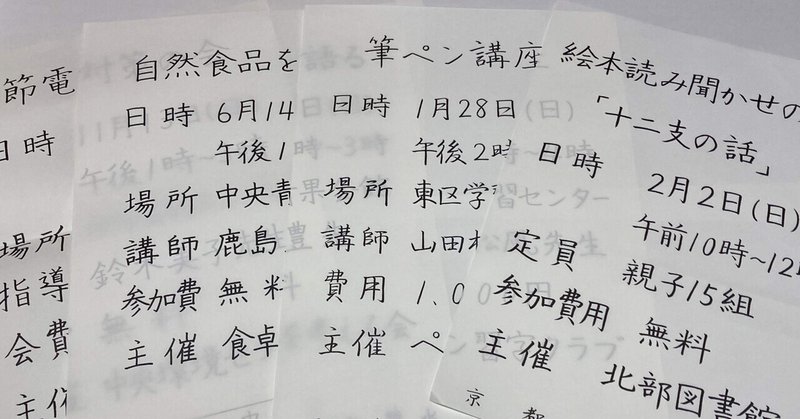 節電
日時
場所
指導
会費
主催
自然食品を
日時 6月14
午後1
場所 中央青
講師 鹿島
参加費 無料
主催 食卓
筆ペン講座
日時 1月28日(日)
午後2時
場所 東区学習センター
講師 山田
費用 1,00
主催 ペン習字クラブ
絵本読み聞かせの
「十二支の話」
日時 2月2日(日)
午前10時~12
定員 親子15組
参加費用 無料
主催 北部図書館
京